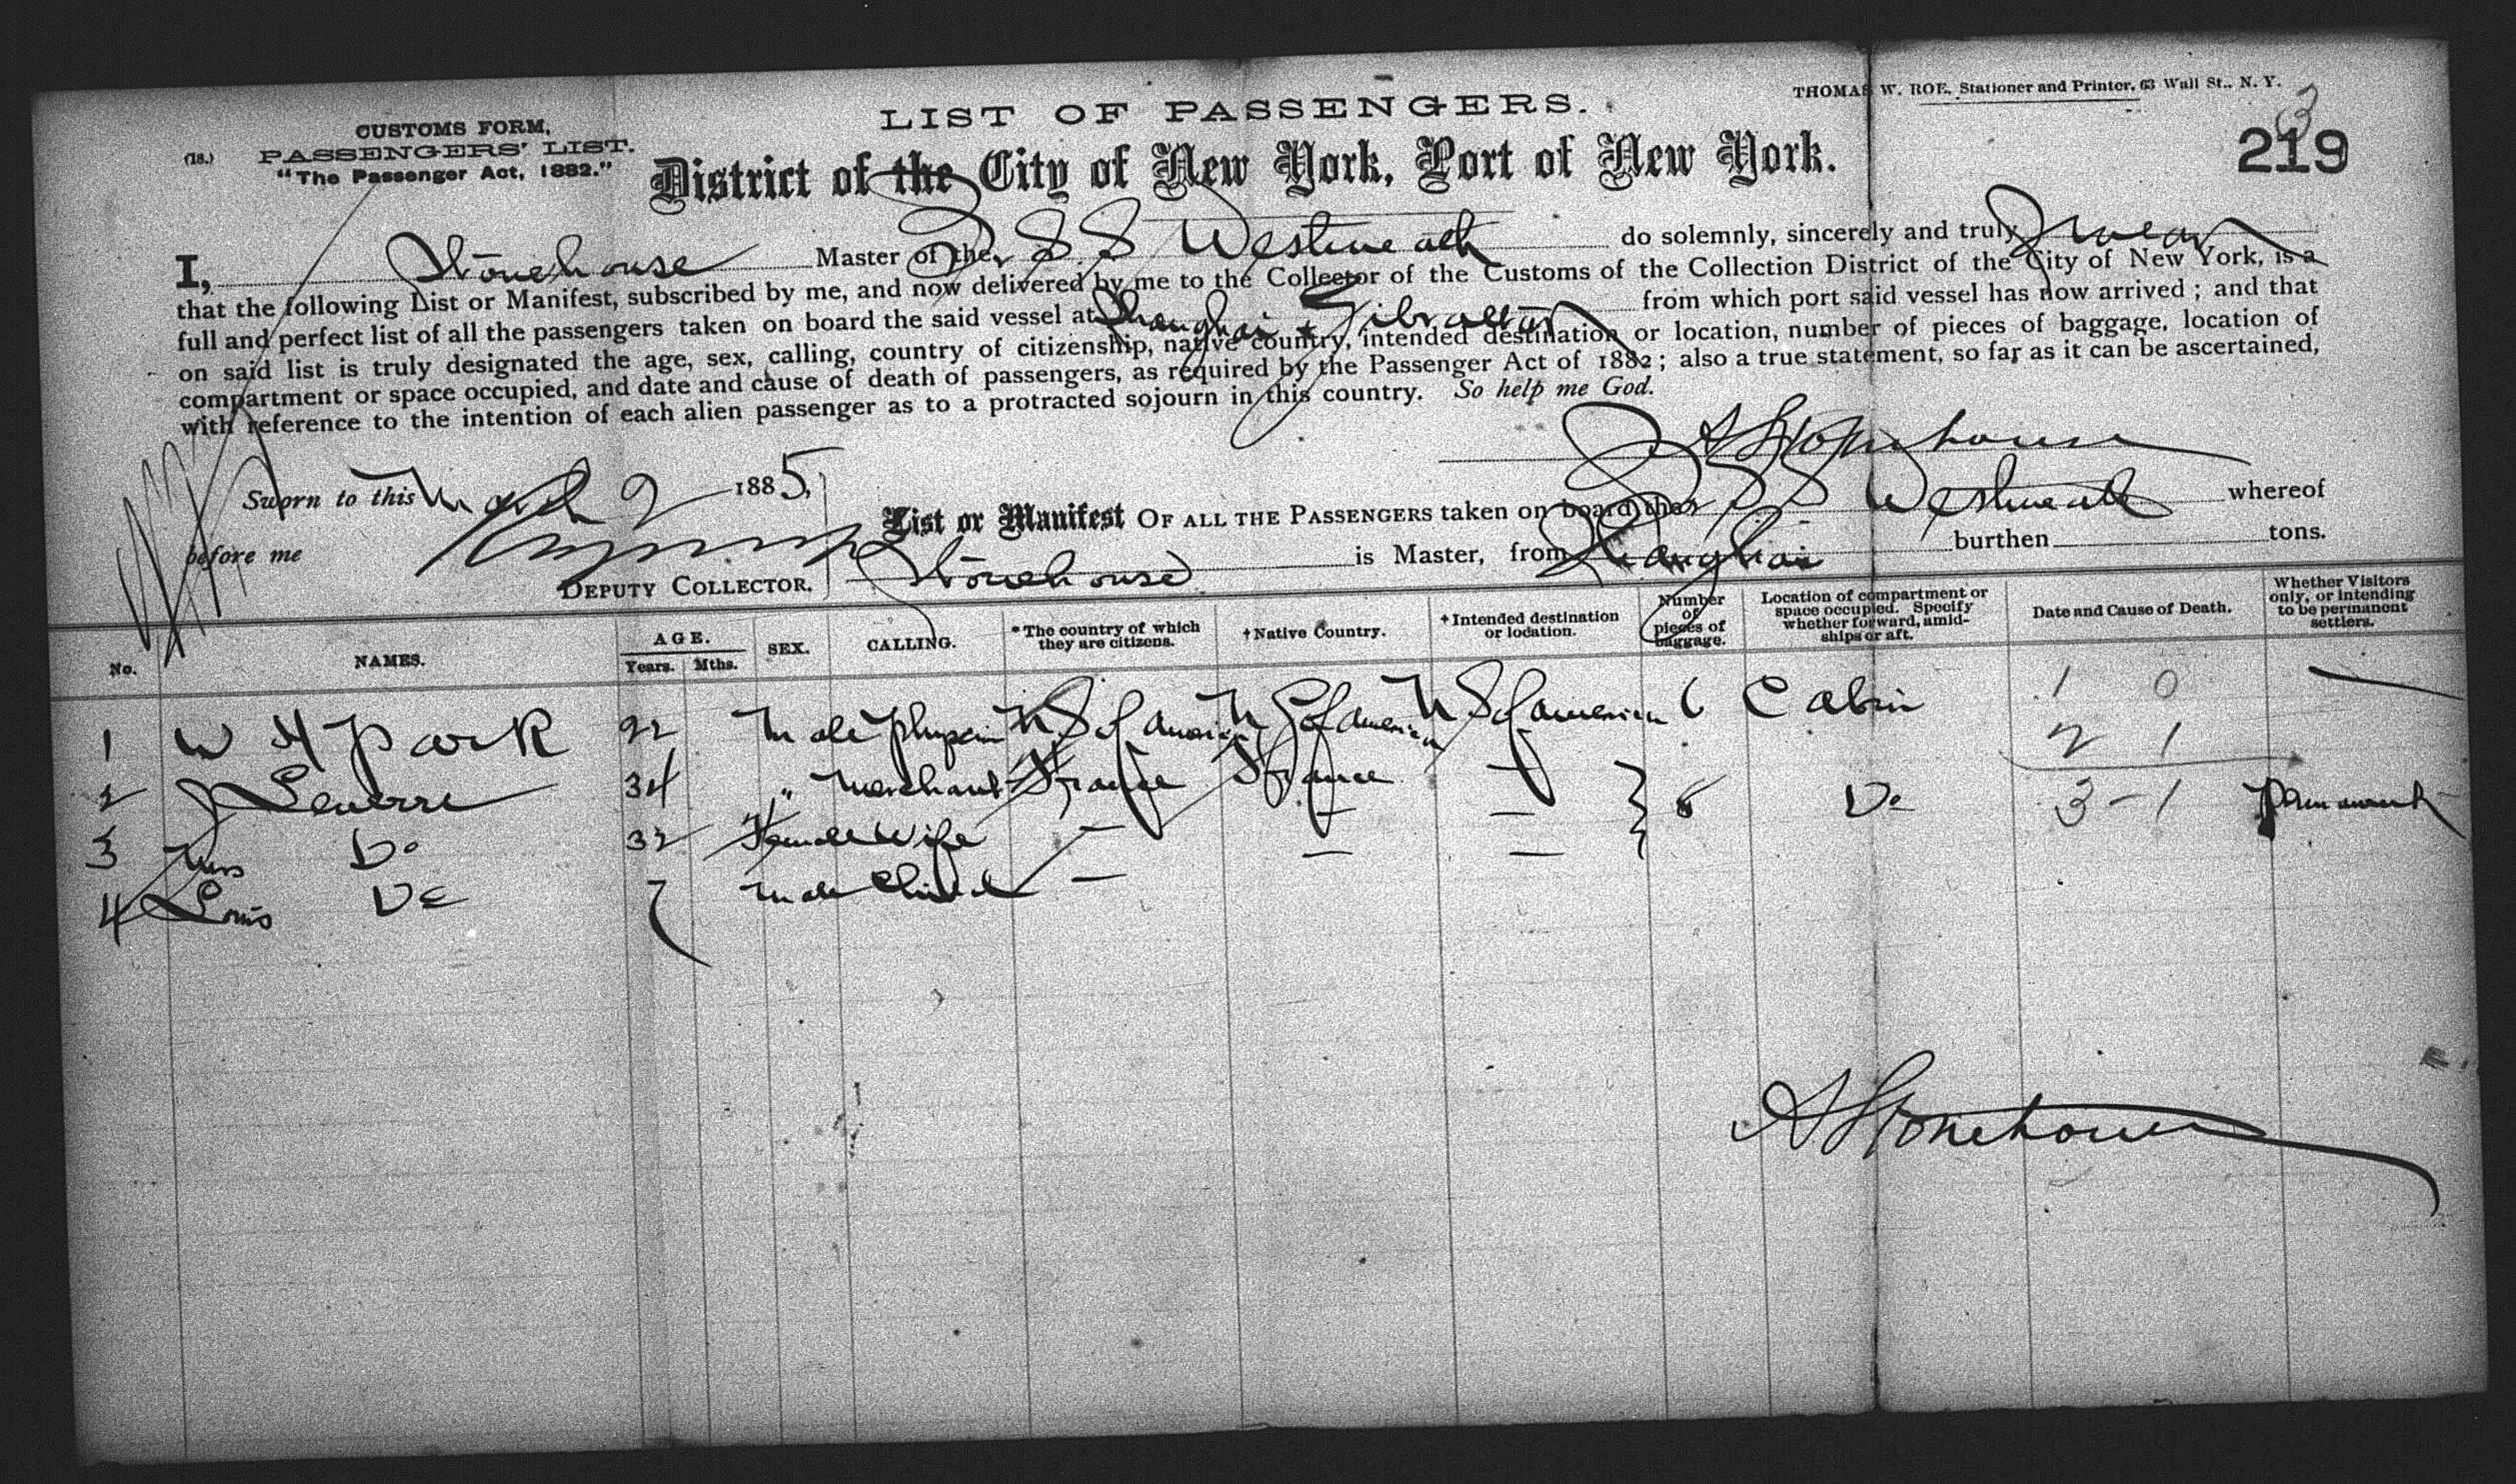 LIST OF PASSENGERS.
THOMAS W. ROE, Stationer and Printer, 63 Wall St., N. Y.
3
219
(18.)
CUSTOMS FORM,
PASSENGERS' LIST.
"The Passenger Act, 1882."
District of the City of New York, Port of New York.
I, Stonehouse Master of the S S Westmeath do solemnly, sincerely and truly swear
that the following List or Manifest, subscribed by me, and now delivered by me to the Collector of the Customs of the Collection District of the City of New York, is a
full and perfect list of all the passengers taken on board the said vessel at Shanghai & Gibraltar from which port said vessel has now arrived; and that
on said list is truly designated the age, sex, calling, country of citizenship, native country, intended destination or location, number of pieces of baggage, location of
compartment or space occupied, and date and cause of death of passengers, as required by the Passenger Act of 1882; also a true statement, so far as it can be ascertained,
with reference to the intention of each alien passenger as to a protracted sojourn in this country. So help me God.
A Stonehouse
Sworn to this March 2 1885,
before me
DEPUTY COLLECTOR.
List or Manifest OF ALL THE PASSENGERS taken on board the S S Westmeath whereof
Stonehouse is Master, from Shanghai burthen tons.
No. NAMES. AGE. Years. Mths. SEX. CALLING. *The country of which they are citizens. †Native Country. †Intended destination or location. Number of pieces of baggage. Location of compartment or space occupied. Specify whether forward, amidships or aft. Date and Cause of Death. Whether Visitors only, or intending to be permanent settlers.
1 W H Park 22 Male Physician U S of America U S of America U S of America 6 Cabin 1 0
2 1
2 J 34 " Merchant France France 8 Do 3-1 Permanent
3 Mrs Do 32 Female Wife — — —
4 Louis Do 7 Male Child — — —
A Stonehouse